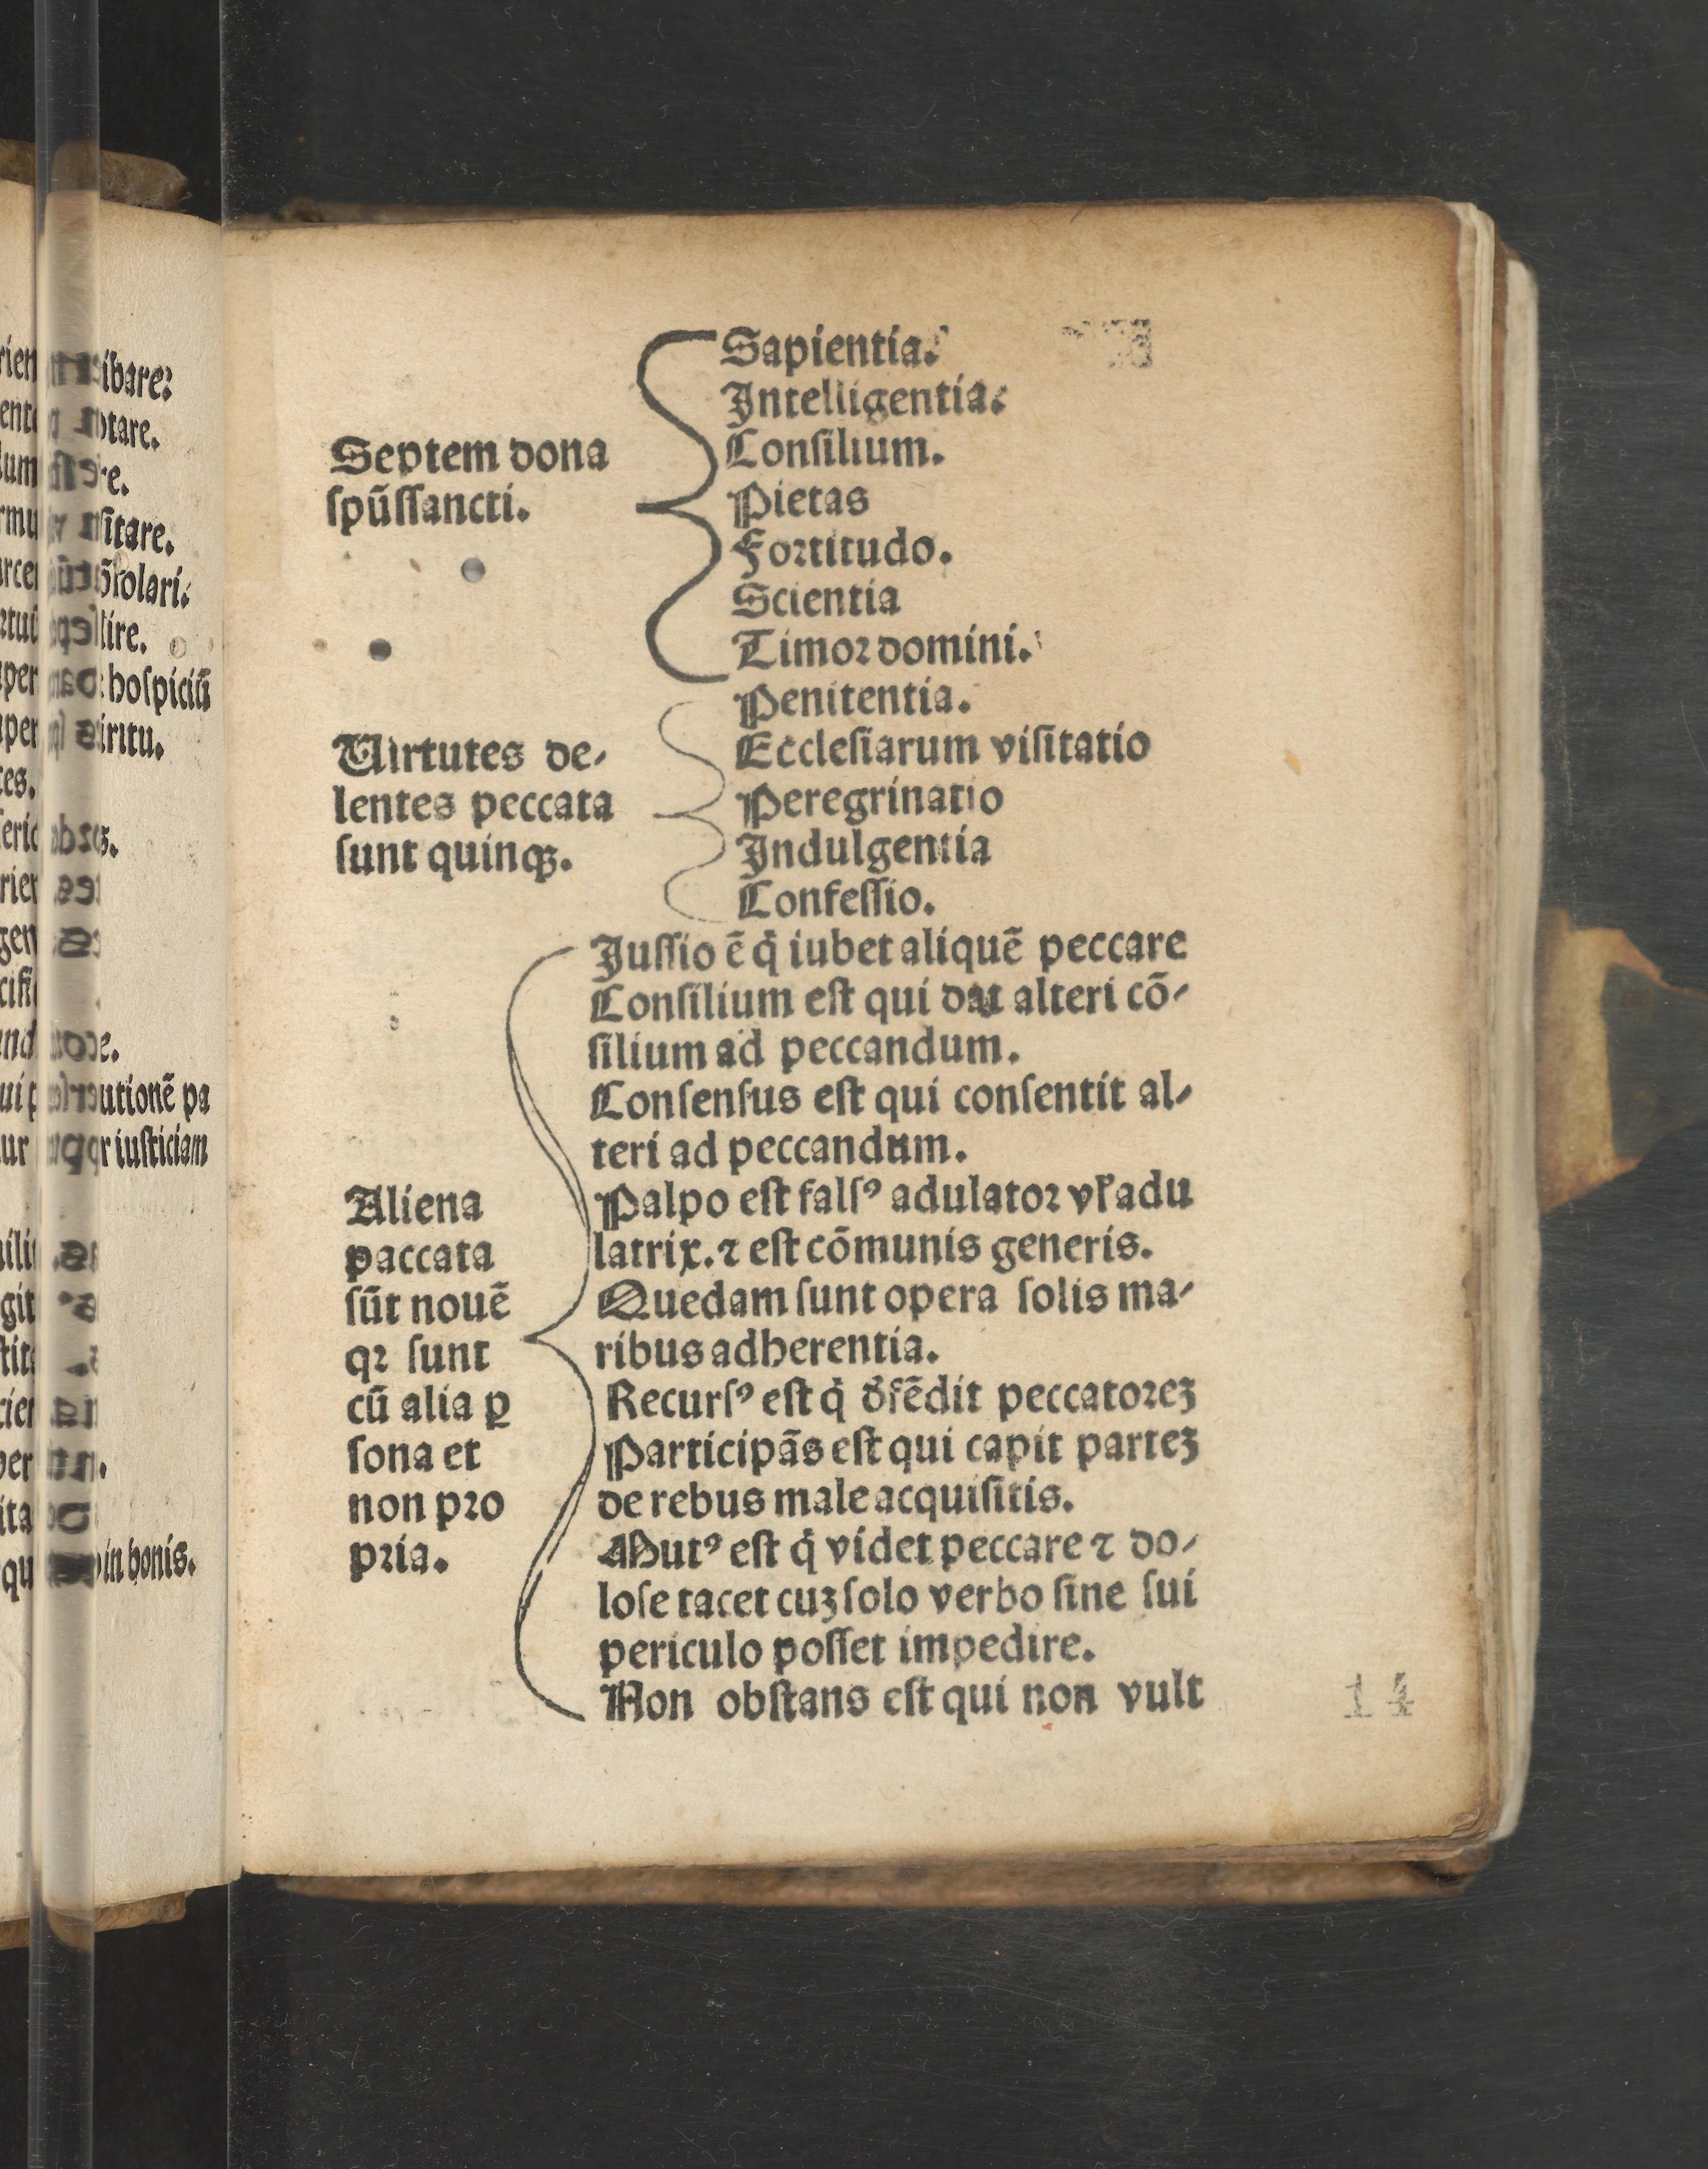 Septem dona
ſpūſſancti.
Sapientia.
Intelligentia.
Conſilium.
Pietas
Fortitudo.
Scientia
Timor domini.
Uirtutes de-
lentes peccata
ſunt quinqꝫ.
Penitentia.
Eccleſiarum viſitatio
Peregrinatio
Indulgentia
Confeſſio.
Aliena
paccata
sūt nouē
qꝛ ſunt
cū alia ꝑ
ſona et
non pro
pria.
Juſſio ē q̇ iubet aliquē peccare
Conſilium eſt qui dat alteri cō-
ſilium ad peccandum.
Conſenſus eſt qui conſentit al-
teri ad peccandum.
Palpo eſt falſꝰ adulator vl̓ adu
latrix. ⁊ eſt cōmunis generis.
Quedam ſunt opera ſolis ma-
ribus adherentia.
Recurſꝰ eſt q̇ d̓fēdit peccatoreꝫ
Participās eſt qui capit parteꝫ
de rebus male acquiſitis.
Mutꝰ eſt q̇ videt peccare ⁊ do-
loſe tacet cuꝫ ſolo verbo ſine ſui
periculo poſſet impedire.
Non obſtans eſt qui non vult
14
ibare:
tare.
re.
ſitare.
lire.
hoſpiciū
iritu.
utionē pa
r iuſticiam
in bonis.